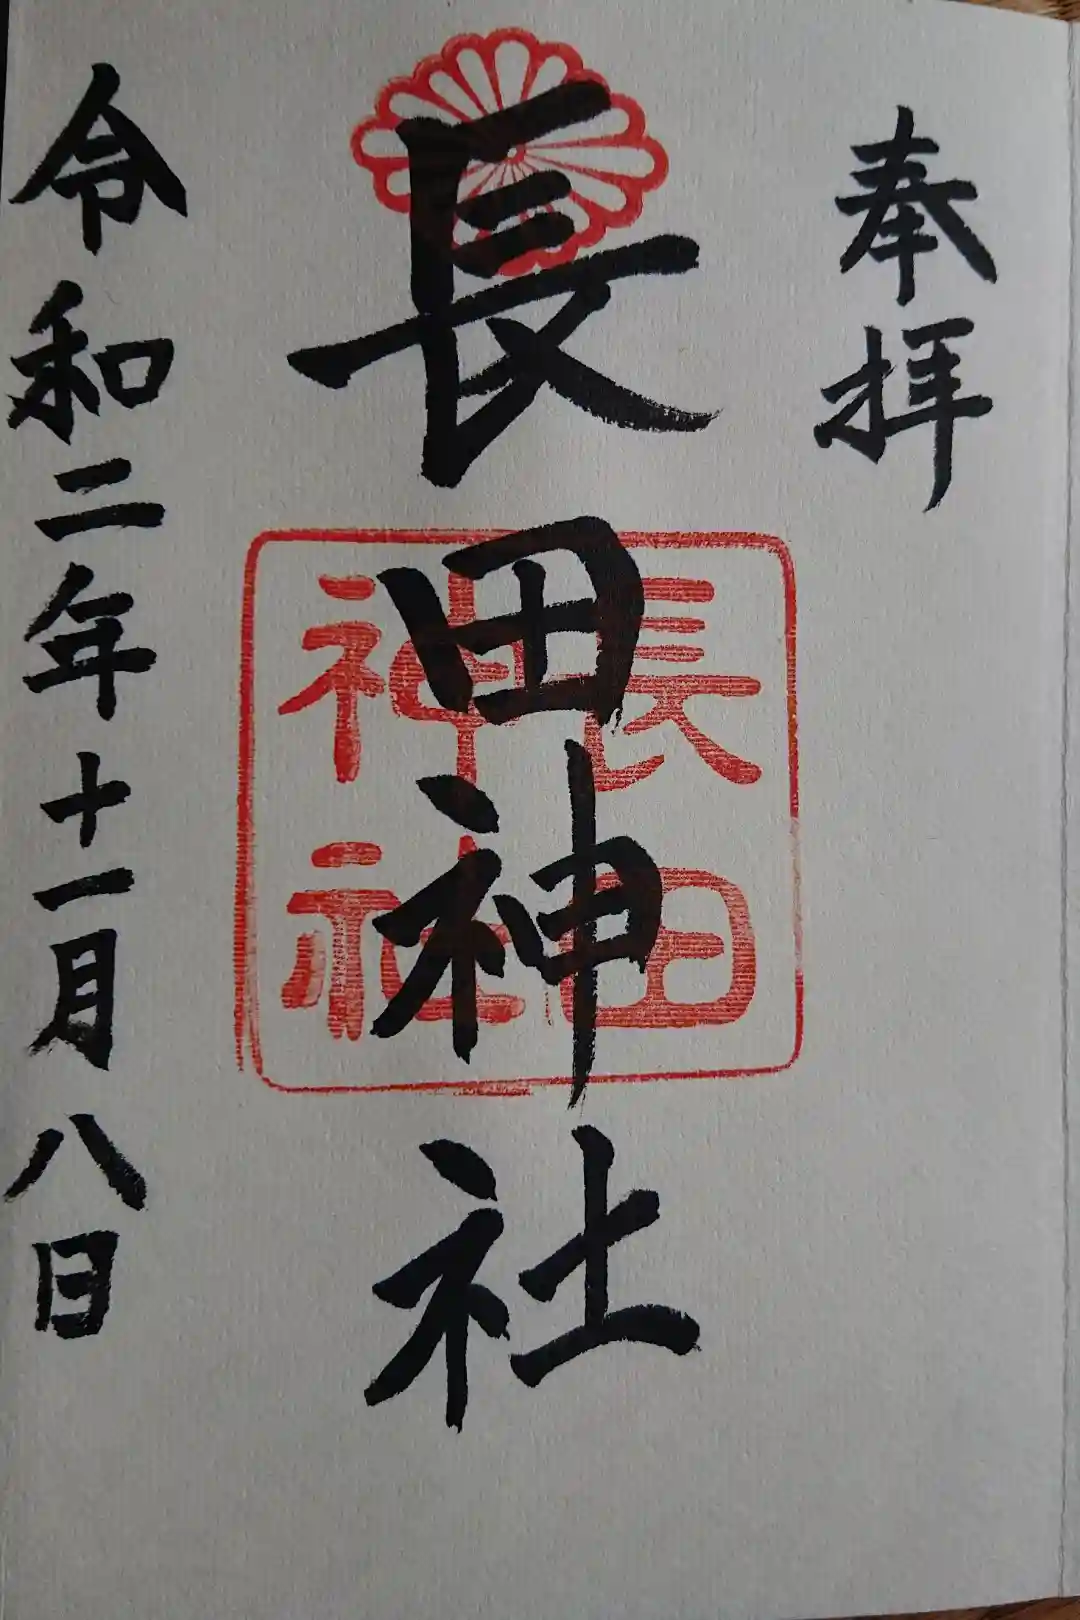 奉拝
長田神社
長田
神社
令和二年十一月八日